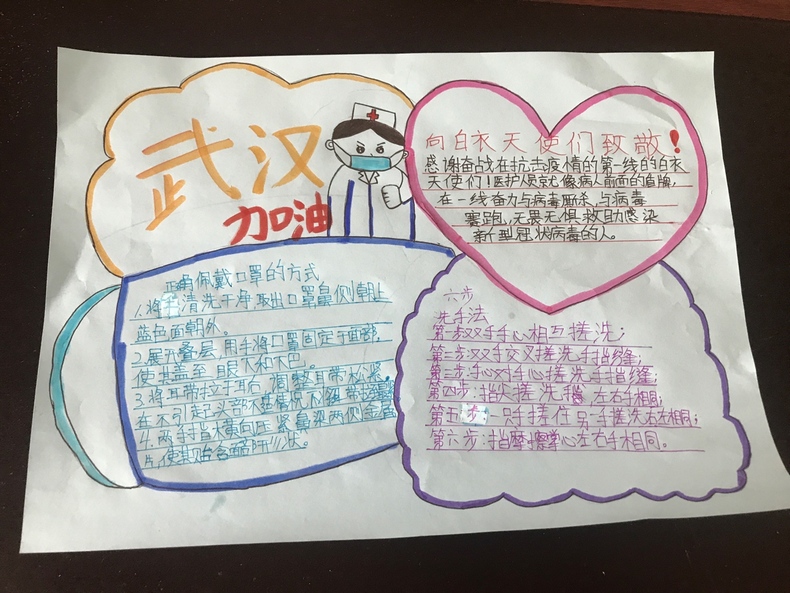 武汉
加油
向白衣天使们致敬！
感谢奋战在抗击疫情的第一线的白衣
天使们！医护人员就像病人前面的盾牌，
在一线奋力与病毒厮杀，与病毒
赛跑，无畏无惧救助感染
新型冠状病毒的人。
正确佩戴口罩的方式
1.将手清洗干净，取出口罩鼻侧朝上
蓝色面朝外。
2.展开叠层，用手将口罩固定于面部，
使其盖至眼下和下巴。
3.将耳带挂于耳后，调整耳带松紧，
在不引起头部不适情况下绷带
4.两手指横向压紧鼻梁两侧金属
片，使其贴合鼻
六步
洗手法
第一步：双手手心相互搓洗；
第二步：双手交叉搓洗手指缝；
第三步：手心对手心搓洗手指缝；
第四步：指尖搓洗手 左右手相同；
第五步：一只手搓住另一手搓洗左右相同；
第六步：指 摩擦掌心左右手相同。